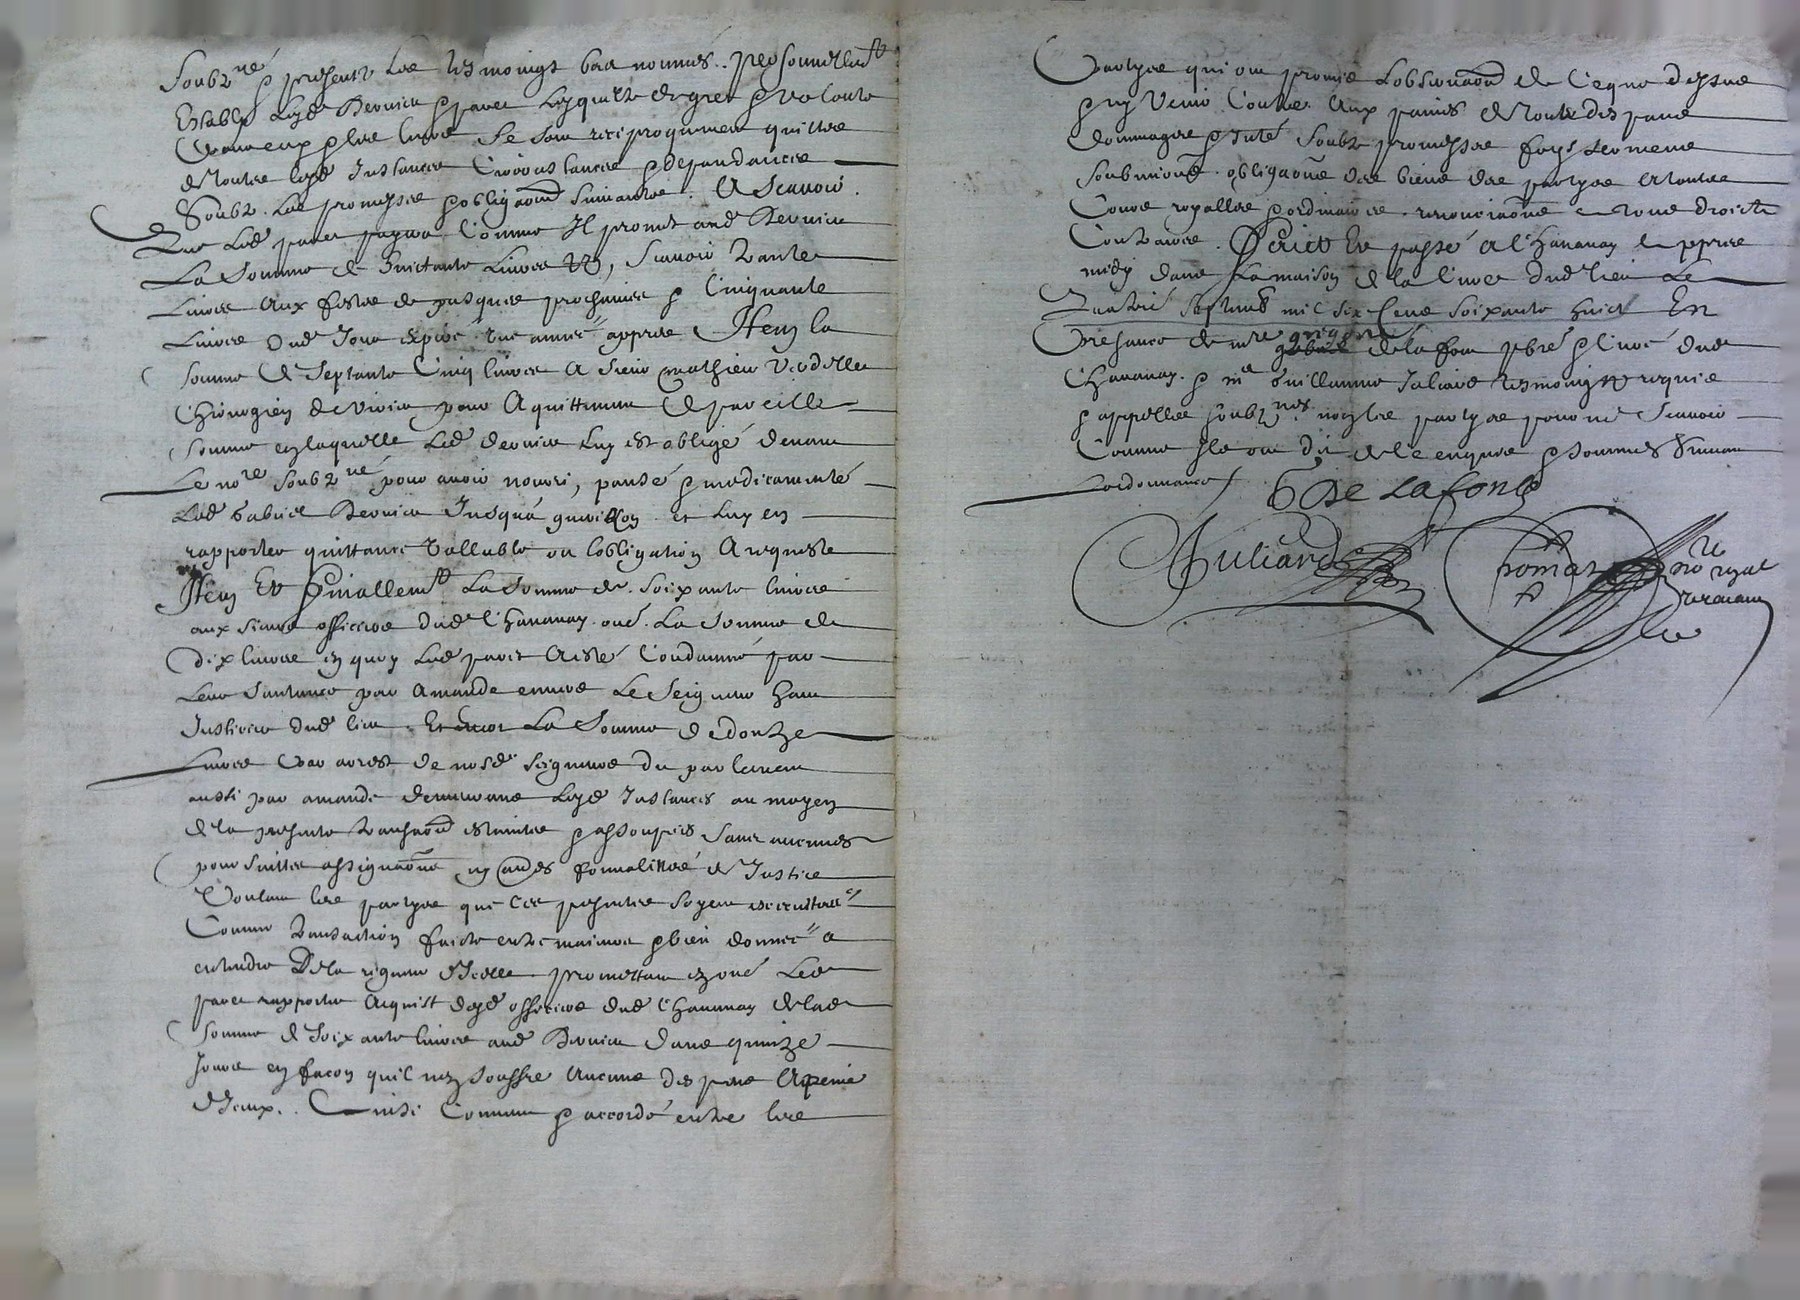 Soubzné & presents les tesmoings bas nommés. personnellemt
Establys lesds Bernica & paret lesquelz de gré & volonté
pour eux & les leurs se sont reciproquement quittes
de toutes lesds Instances Circonstances & dependances
Soubz les promesses & obligaons suivantes. A Scavoir
Que Led paret payera comme Il promet aud Bernica
La Somme de huictante Livres tz, Scavoir trante
Livres aux festes de pasques prochaines & Cinquante
Livres dud Jour expiré une année appres Item la
somme de Septante Cinq livres a Sieur mathieu
Chirurgien de pour Aquittement de pareille
somme en laquelle Led bernica luy est obligé devant
Le nore soubzné pour avoir nourri, pansé & medicamenté
Led Gabriel Bernica Jusqua guerison et luy en
rapporter quittance vallable ou lobligation Acquistée
Item Et finallemt La Somme de Soixante livres
aux sieurs officiers dud Chananay outre La Somme de
dix livres en quoy Led paret A esté Condamné par
Leur Santance pour Amande envers Le Seigneur haut
Justicier dud lieu Et Encor La Somme de douze
Livres par arrest de nosds seigneurs du parlement
aussi pour amande demeurant lesds Instances au moyen
de la presente transaon estaintes & assoupies sans aucunes
poursuittes assignaons ny autres formalittés de Justice
Voulant les partyes que Ces presentes soyent
Comme transaction faicte entre maieurs & bien donnée a
entendre De la rigueur dIcelle promettant en outre Led
paret rapporter Acquist desds officiers dud Chananay de lad
somme de Soixante livres aud Bernica dans quinze
Jours en façon quil nen souffre Aucuns despans A peine
dIceux. Ainsi Convenu & accordé entre les
Partyes qui ont promis Lobservaon de Ce que dessus
& ny Venir Contre Aux paines de touts despans
dommages & Inté soubz promesses foys serments
soubmions obligaons des biens des partyes A toutes
Cours royalles & ordinaires renonciaons a tous droicts
Contraires. Faict Et passé A Chananay le appres
midy dans La maison de la Cure dud lieu Le
Quatrié Septemb mil six Cens Soixante huict En
Presance de mre gregoire de la fon pbre & Curé dud
Chananay & me Guillaume Juliard tesmoings requis
& appelles soubznés non les partyes pour ne Scavoir
Comme Ils ont dit de le enquis & sommés Suivant
Lordonnance
G De Lafont
Juliard
nore royal